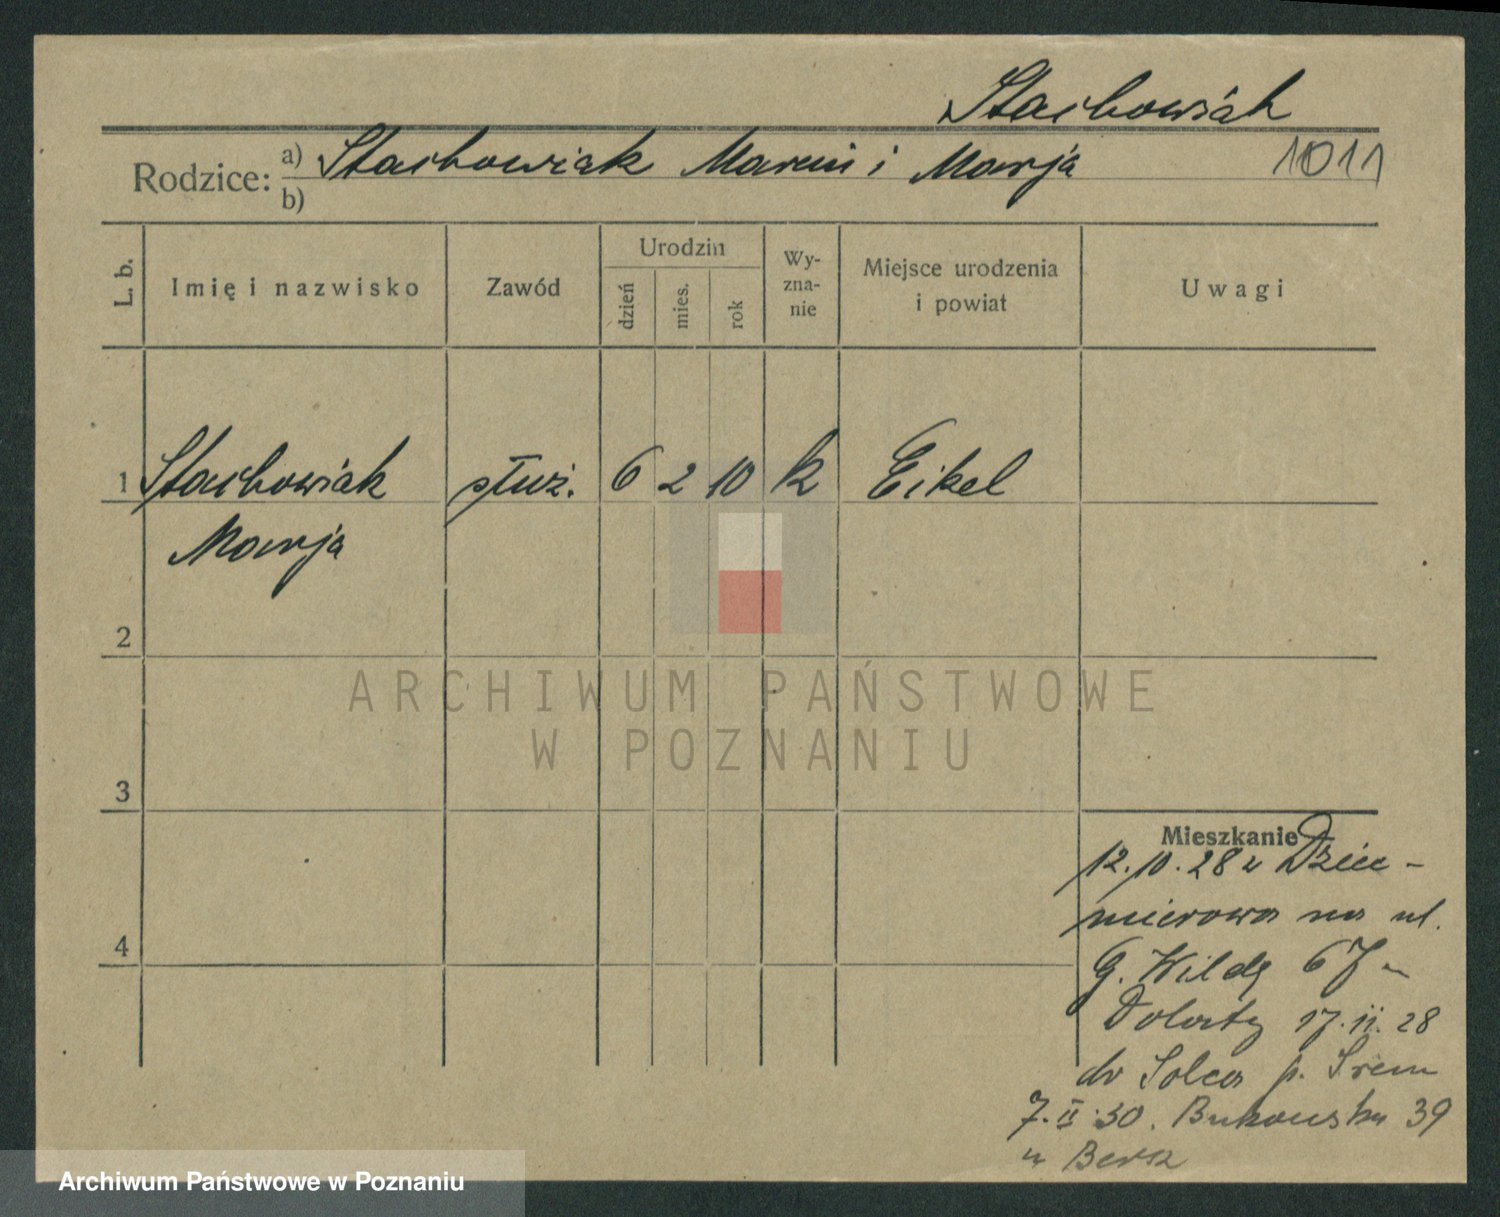 Stachowiak
Rodzice: a) Stachowiak Marcin i Marja 1011
b)
L. b. Imię i nazwisko Zawód Urodzin dzień mies. rok Wy-zna-nie Miejsce urodzenia i powiat Uwagi
1 Stachowiak służ. 6 2 10 k Eikel
Marja
2
3
4
Mieszkanie
12.10.28 z Dzieć-
mierowa na ul.
G. Wildę 67 u
Dolaty 17.11.28
do Solca p. Śrem
7.II.30. Bukowska 39
u
ARCHIWUM PAŃSTWOWE
W POZNANIU
Archiwum Państwowe w Poznaniu